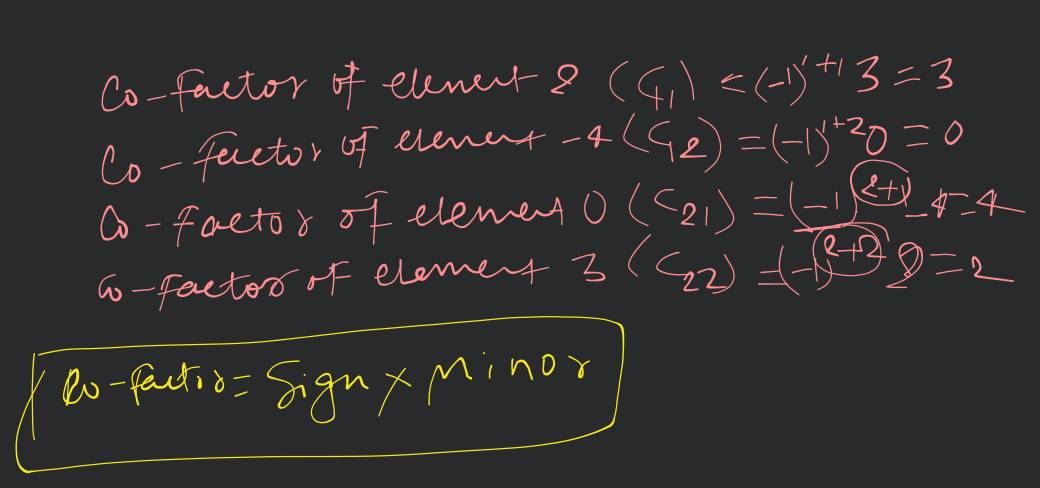 Co-factor of element 2 (C11) = (-1)^1+1 3 = 3
Co-factor of element -4 (C12) = (-1)^1+2 0 = 0
Co-factor of element 0 (C21) = (-1)^2+1 -4 = 4
Co-factor of element 3 (C22) = (-1)^2+2 2 = 2
Co-factor = Sign × Minor